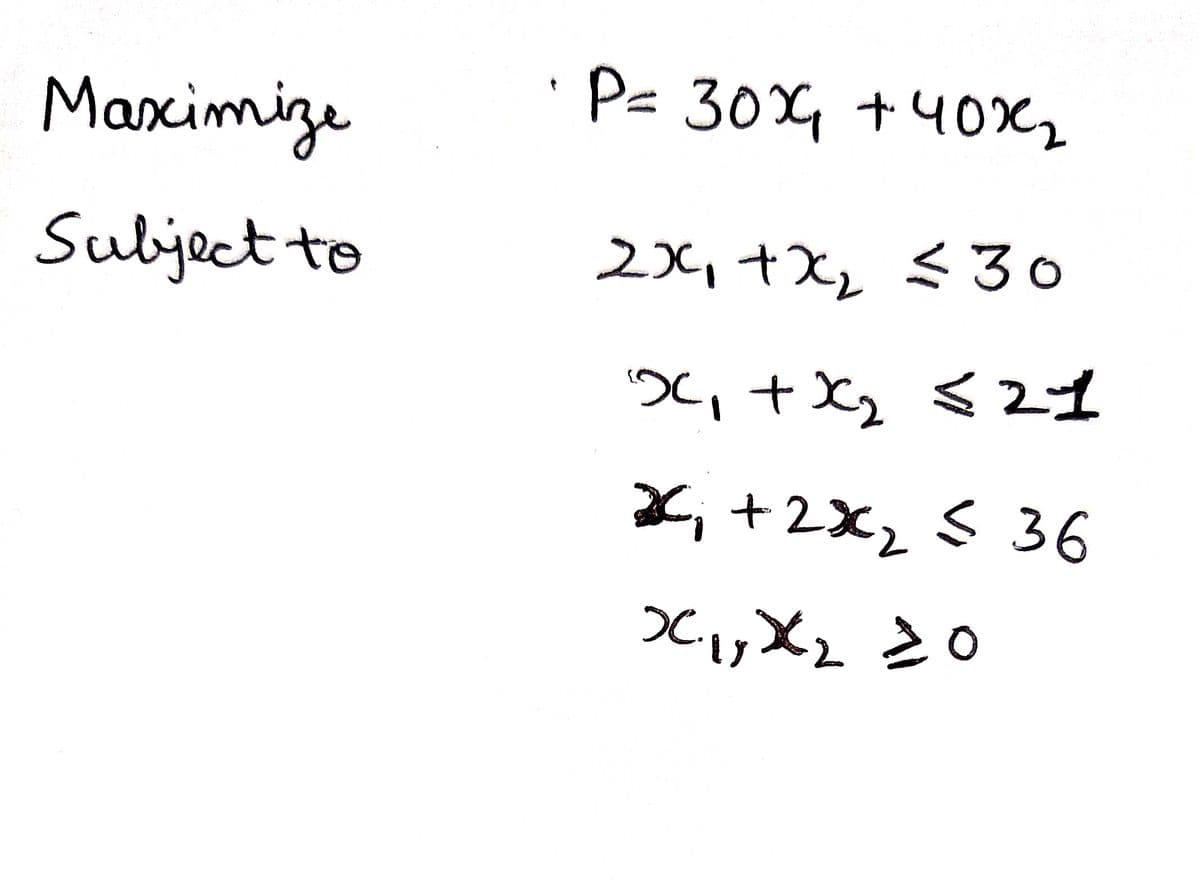 Maximize P= 30x₁ + 40x₂
Subject to 2x₁ + x₂ ≤ 30
x₁ + x₂ ≤ 21
x₁ + 2x₂ ≤ 36
x₁, x₂ ≥ 0